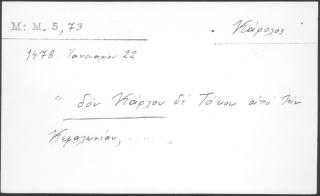 M: M. 5, 73
Κάρολος
1478 Ἰανουαρίου 22
" δόν Κάρλου δέ Τόκου ἀπό τήν
Κεφαλωνίαν, .....